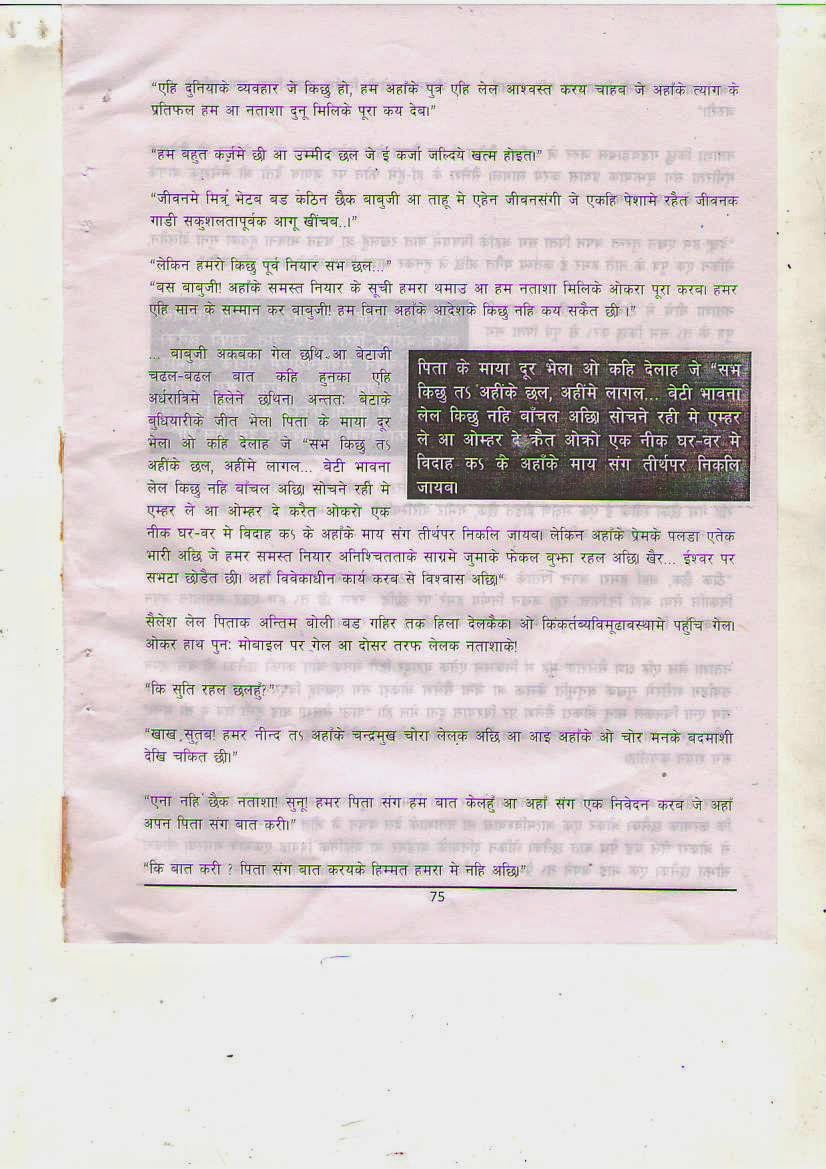 "एहि दुनियाके व्यवहार जे किछु हो, हम अहाँके पुत्र एहि लेल आश्वस्त करय चाहब जे अहाँके त्याग के
प्रतिफल हम आ नताशा दुनू मिलिके पूरा कय देब।"
"हम बहुत कर्ज़मे छी आ उम्मीद छल जे ई कर्जा जल्दिये खत्म होइत।"
"जीवनमे मित्र भेटब बड कठिन छैक बाबुजी आ ताहू मे एहेन जीवनसंगी जे एकहि पेशामे रहैत जीवनक
गाडी सकुशलतापूर्वक आगू खींचब..।"
"लेकिन हमरो किछु पूर्व नियार सभ छल..."
"बस बाबुजी! अहाँके समस्त नियार के सूची हमरा थमाउ आ हम नताशा मिलिके ओकरा पूरा करब। हमर
एहि मान के सम्मान कर बाबुजी! हम बिना अहाँके आदेशके किछु नहि कय सकैत छी ।"
... बाबुजी अकबका गेल छथि..आ बेटाजी
चढल-बढल बात कहि हुनका एहि
अर्धरात्रिमे हिलेने छथिन। अन्ततः बेटाके
बुधियारीके जीत भेल। पिता के माया दूर
भेल। ओ कहि देलाह जे "सभ किछु तऽ
अहींके छल, अहींमे लागल... बेटी भावना
लेल किछु नहि बाँचल अछि। सोचने रही मे
एम्हर ले आ ओम्हर दे करैत ओकरो एक
नीक घर-वर मे विदाह कऽ के अहाँके माय संग तीर्थपर निकलि जायब। लेकिन अहाँके प्रेमके पलडा एतेक
भारी अछि जे हमर समस्त नियार अनिश्चितताके साग्रमे जुमाके फेकल बुझा रहल अछि। खैर... ईश्वर पर
सभटा छोडैत छी। अहाँ विवेकाधीन कार्य करब से विश्वास अछि।"
पिता के माया दूर भेल। ओ कहि देलाह जे "सभ
किछु तऽ अहींके छल, अहींमे लागल... बेटी भावना
लेल किछु नहि बाँचल अछि। सोचने रही मे एम्हर
ले आ ओम्हर दे क्रैत ओक्रो एक नीक घर-वर मे
विदाह कऽ के अहाँके माय संग तीर्थपर निकलि
जायब।
सैलेश लेल पिताक अन्तिम बोली बड गहिर तक हिला देलकैक। ओ किंकर्तब्यविमूढावस्थामे पहुँचि गेल।
ओकर हाथ पुनः मोबाइल पर गेल आ दोसर तरफ लेलक नताशाके!
"कि सुति रहल छलहुँ?"
"खाख सुतब! हमर नीन्द तऽ अहाँके चन्द्रमुख चोरा लेलक अछि आ आई अहाँके ओ चोर मनके बदमाशी
देखि चकित छी।"
"एना नहि छैक नताशा! सुनू! हमर पिता संग हम बात केलहुँ आ अहाँ संग एक निवेदन करब जे अहाँ
अपन पिता संग बात करी।"
"कि बात करी ? पिता संग बात करयके हिम्मत हमरा मे नहि अछि।"
75